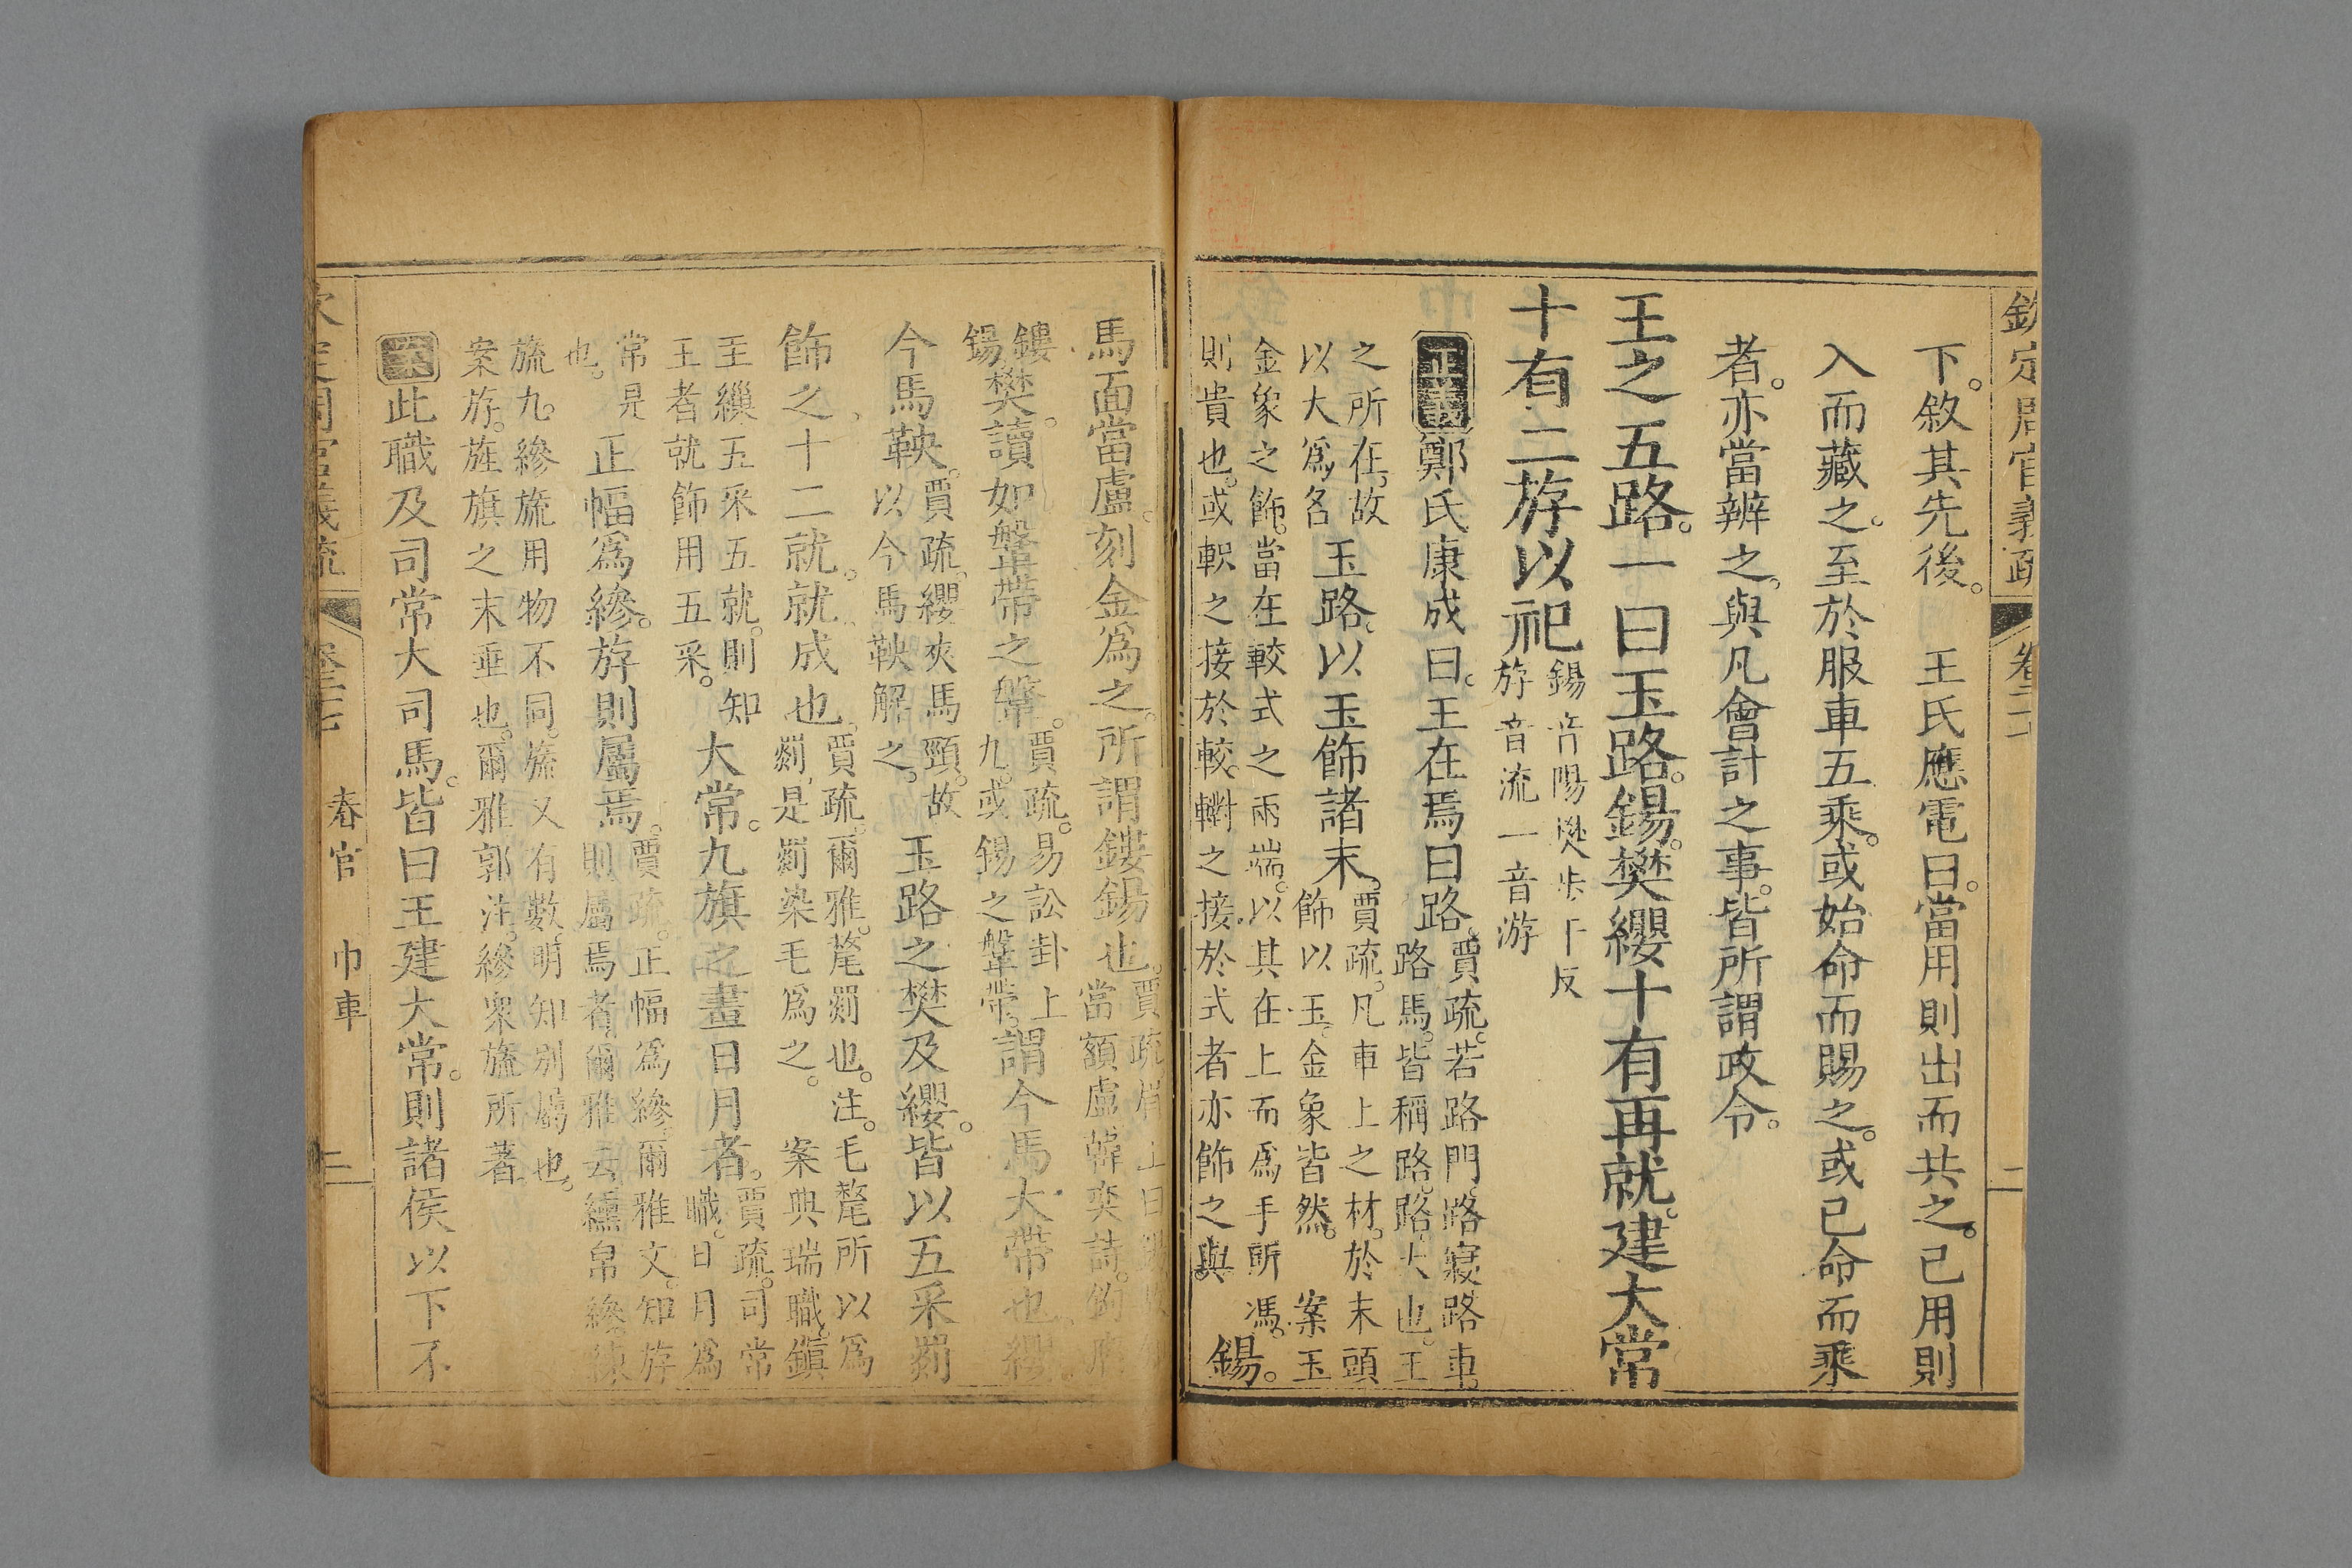 欽定周官義疏 卷二十七 二
下。敘其先後。 王氏應電曰。當用則出而共之。已用則
入而藏之。至於服車五乘。或始命而賜之。或已命而乘
者。亦當辨之。與凡會計之事。皆所謂政令。
王之五路。一曰玉路。鍚。樊纓十有再就。建大常
十有二斿以祀
鍚音陽樊步干反
斿音流一音游
正義鄭氏康成曰。王在焉曰路。
賈疏。若路門。路寢路車。
路馬。皆稱路。路大也。王
之所在。故
以大爲名
玉路。以玉飾諸末。
賈疏。凡車上之材。於末頭
飾以玉。金象皆然。 案玉
金象之飾。當在較式之兩端。以其在上而爲手所馮。
則貴也。或軹之接於較。轛之接於式者亦飾之與。
鍚。
馬面當盧。刻金爲之。所謂鏤鍚也。
賈疏眉上曰
當額盧。韓奕詩。鉤膺
鏤
鍚。
樊。讀如鞶帶之鞶。
賈疏。易訟卦上
九。或錫之鞶帶。
謂今馬大帶也。纓。
今馬鞅。
賈疏。纓夾馬頸。故
以今馬鞅解之。
玉路之樊及纓。皆以五采罽
飾之十二就。就成也。
賈疏。爾雅。氂罽也。注。毛氂所以爲
罽是罽染毛爲之。 案典瑞職。鎭
圭繅五采五就。則知
王者就飾用五采。
大常。九旗之畫日月者。
賈疏。司常
職。日月爲
常是
也。
正幅爲縿。斿則屬焉。
賈疏。正幅爲縿。爾雅文。知斿
則屬焉者。爾雅云。纁帛縿。練
旒九。縿旒用物不同。旒又有數明。知別屬也。
案斿。旌旗之末垂也。爾雅郭注。縿衆旒所著
案此職及司常大司馬。皆曰王建大常。則諸侯以下不
欽定周官義疏 卷二十七 春官 巾車 二